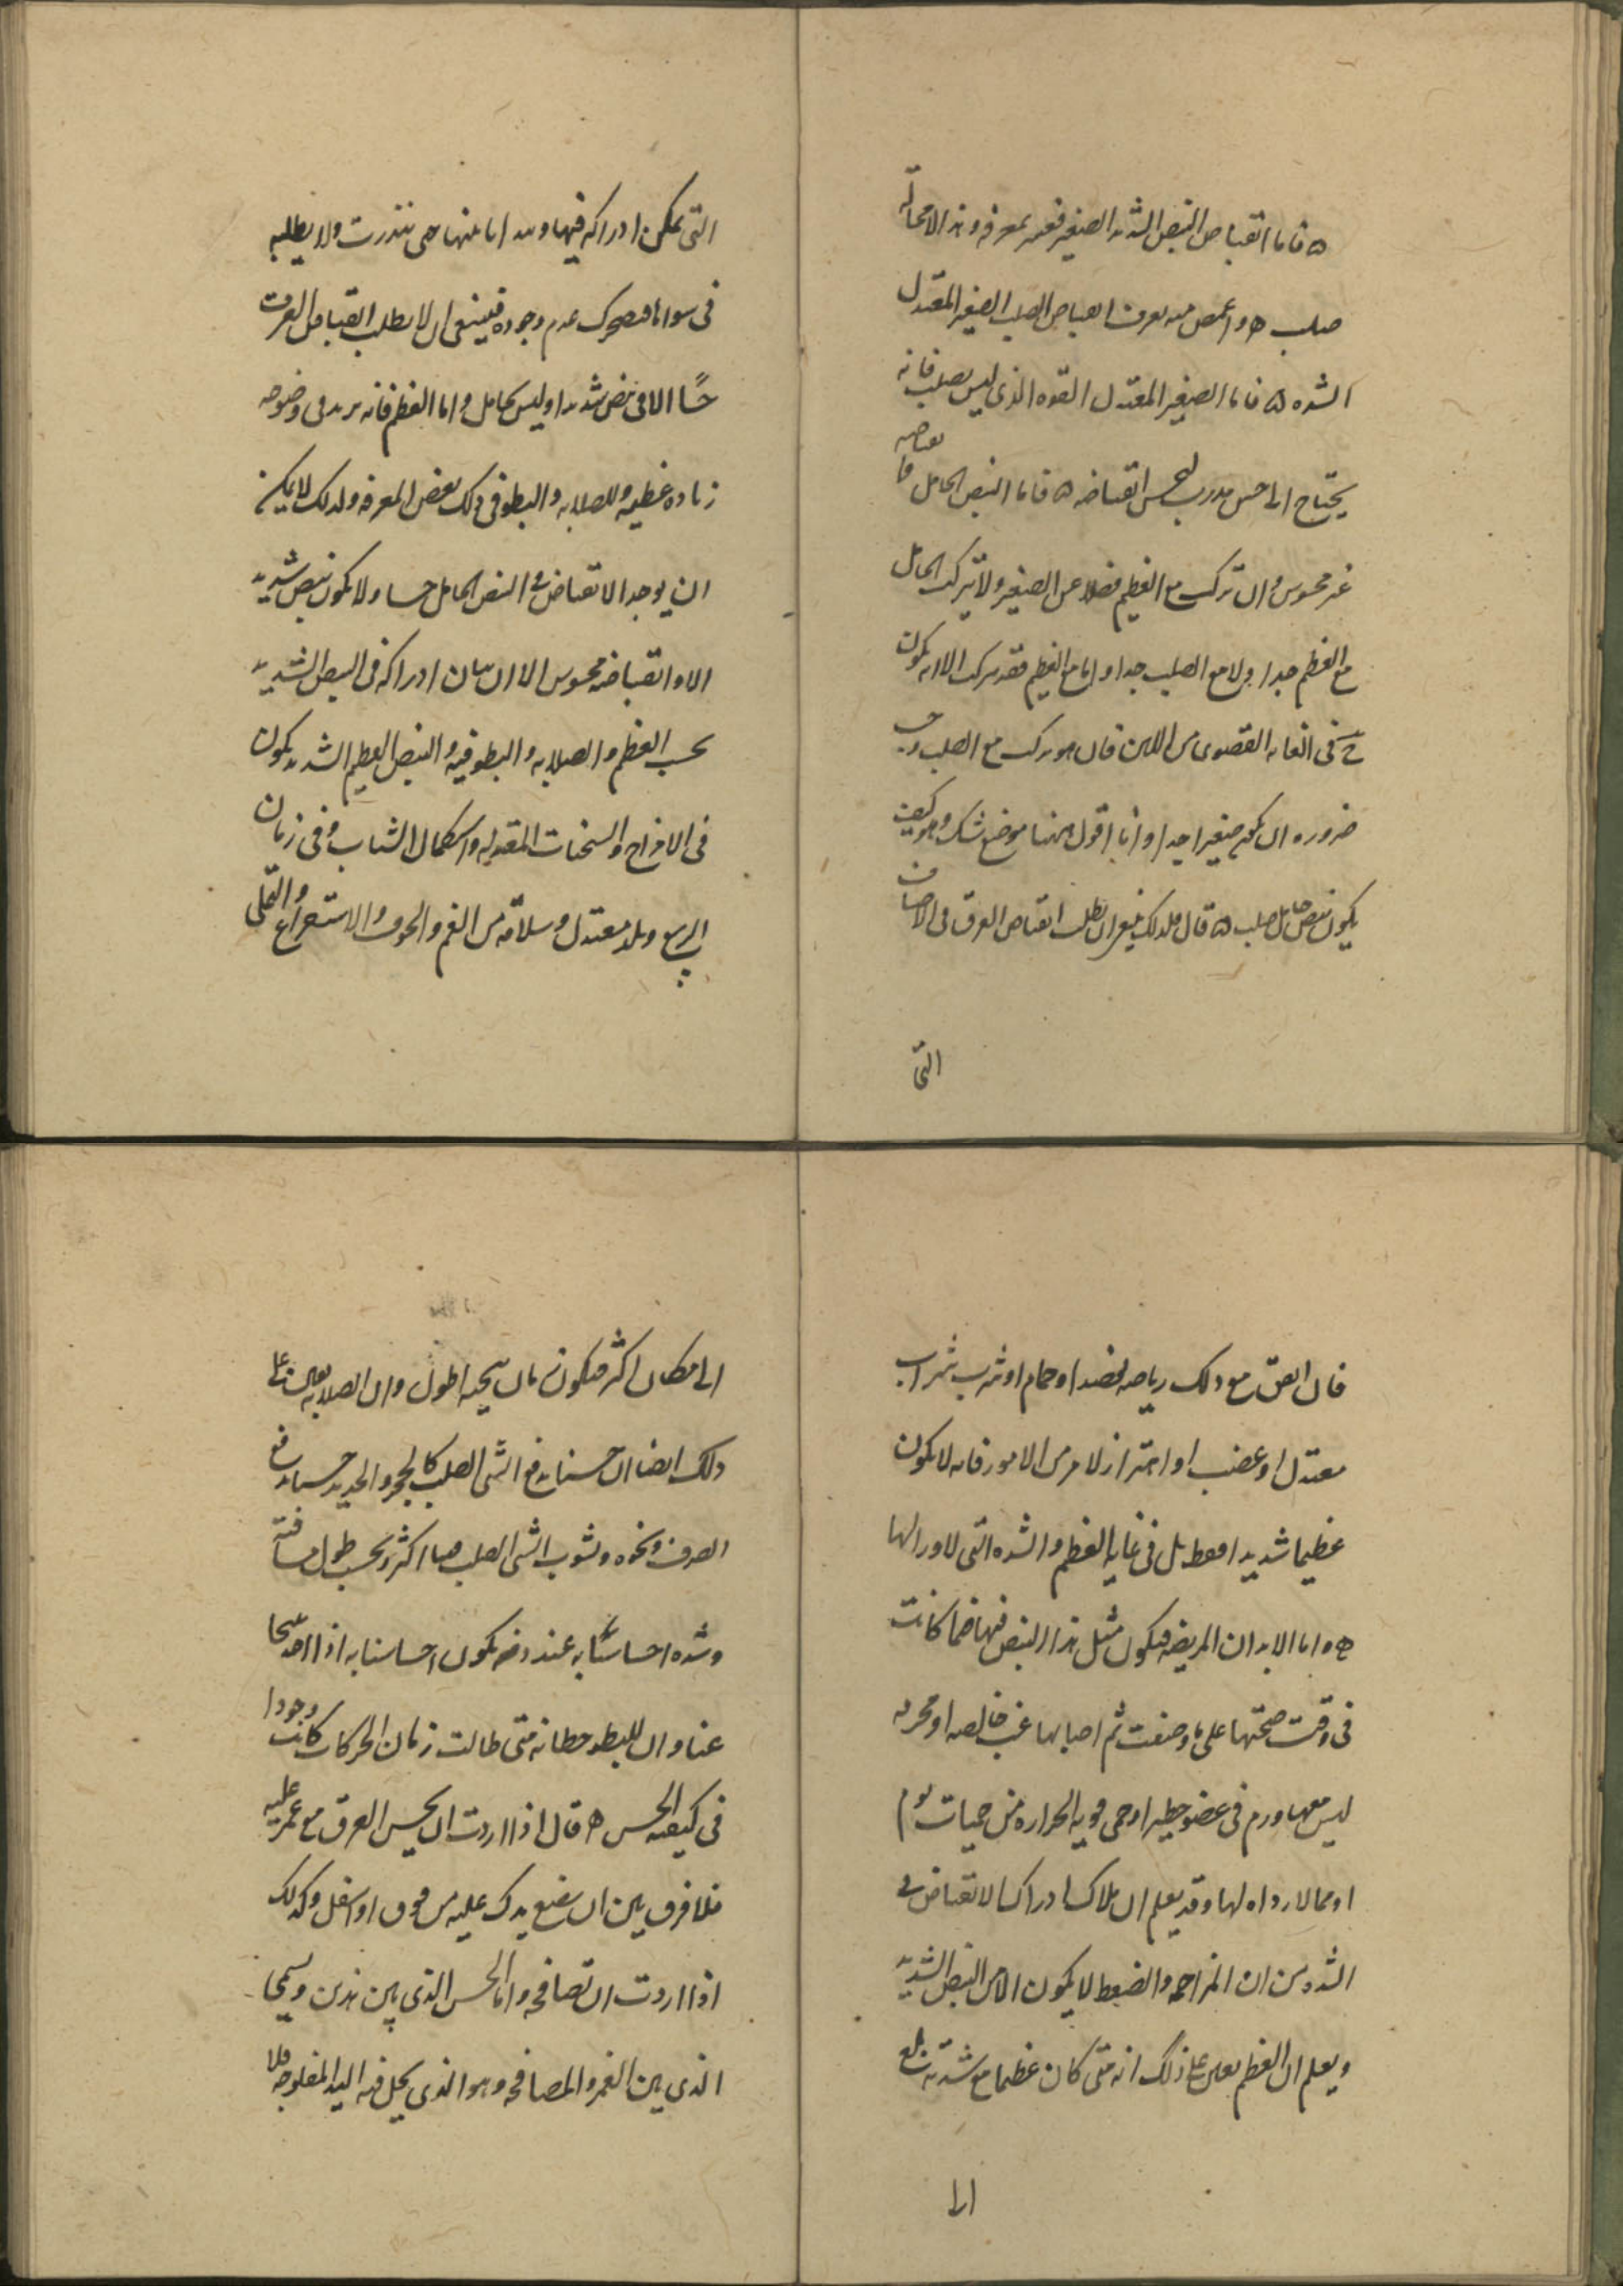 فاما انقباض النبض الشديد الصغير فعسر معرفه وهذا لا محالة
صلب واغمض منه تعرف انقباض الصلب الصغير المعتدل
الشده فاما الصغير المعتدل القوه الذي ليس بصلب فانه
يحتاج الى حس مدرب لحس انقباضه فاما النبض الخامل فانقباضه
غير محسوس وان ترك مع العظيم فضلا عن الصغير ولا يتركب الخامل
مع العظم جدا ولا مع الصلب جدا واما مع العظيم فقد يتركب الا انه يكون
في الغايه القصوى من اللين فان هو تركب مع الصلب وجب
ضروره ان يكون صغيرا جدا وانا اقول ههنا موضع شك وهو كيف
يكون نبض خامل صلب قال فلذلك ينبغي ان تطلب انقباض العرق في الاصناف
التي
التي يمكن ادراكه فيها وتبدا اما منها حتى تتدرب ولا تطلبه
في سواها فتضجرك عدم وجوده فينبغي ان لا تطلب انقباض العرق
حسا الا في نبض شديد او ليس بخامل واما العظم فانه يزيد في وضوحه
زياده عظيمه وللصلابه والبطو في ذلك بعض المعرفه ولذلك لا يمكن
ان يوجد الانقباض في النبض الخامل حسا ولا يكون نبض شديد
الا وانقباضه محسوس الا ان بيان ادراكه في النبض الشديد
بحسب العظم والصلابه والبطو فيه والنبض العظيم الشديد يكون
في الامزاج والسخنات المعتدله واستكمال الشباب وفي زمان
الربيع وبلد معتدل وسلامه من الغم والخوف والاستفراغ والتملي
فان اتفق مع ذلك رياضه قصد او حمام او شرب شراب
معتدل او غضب او اهتزاز لامر من الامور فانه لا يكون
عظيما شديدا فقط بل في غايه العظم والشده التي لا ورا لها
واما الابدان المريضه فيكون مثل هذا النبض فيها فيما كانت
في وقت صحتها على ما وصفت ثم اصابها غب خالصه او محرقه
ليس معها ورم في عضو خطير او حمى قويه الحراره من حميات يوم
او مما لا رداه لها وقد يعلم ان ملاك ادراك الانقباض في
الشده من ان المزاحمه والضغط لا يكون الا من النبض الشديد
ويعلم ان العظم يعين على ذلك انه متى كان عظما مع شدته بلغ
الى
الى مكان اكثر فيكون زمان مجيه اطول وان الصلابه تعين على
ذلك ايضا ان حسنا يدفع الشي الصلب كالحجر والحديد حسا مدافع
الصوف ونحوه ونشوب الشي الصلب فينا اكثر وبحسب طول مسافته
وشده احساسنا به عند دفعه يكون احساسنا به اذا اخذ متنحيا
عنا وان للبطو حظا فانه متى طالت زمان الحركات كانت وجودا
في كيفيه الحس قال اذا اردت ان تحس العرق مع غمز عليه
فلا فرق بين ان تضع يدك عليه من فوق او اسفل وكذلك
اذا اردت ان تصافحه واما الحس الذي بين هذين ويسمى
الذي بين الغمز والمصافحه وهو الذي يجعل فيه اليد المغلوبه فلا